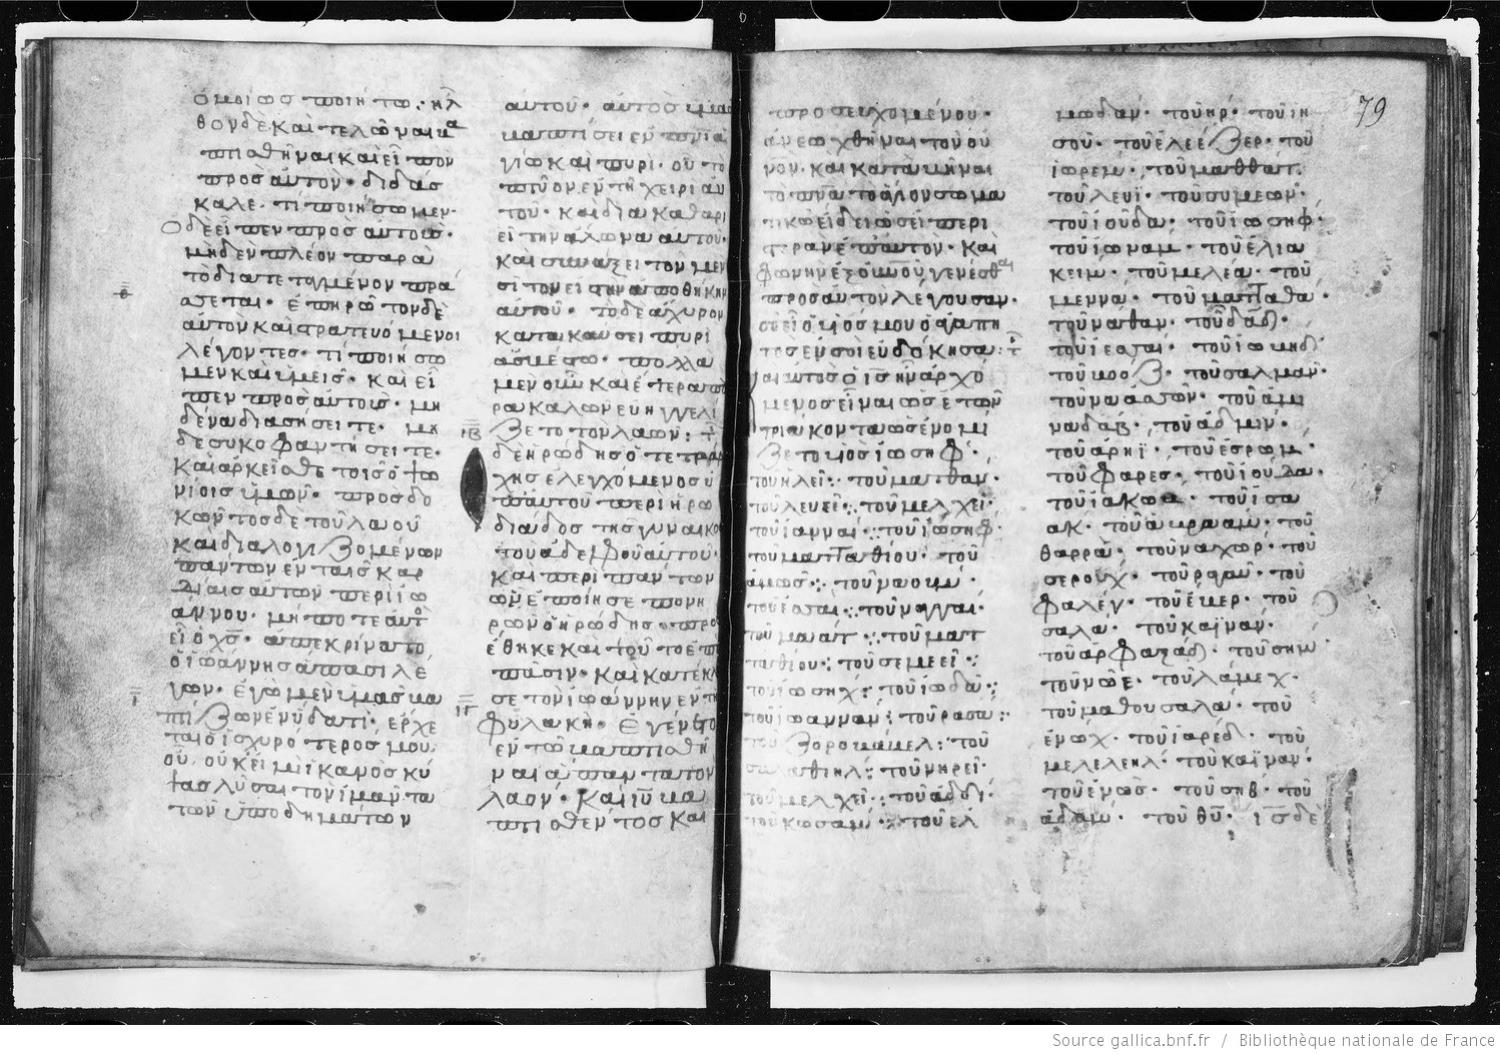 ὁμοίως ποιήτω· ἦλ
θον δὲ καὶ τελῶναι βα
πτισθῆναι καὶ εἶπον
πρὸς αὐτόν· διδάσ
καλε· τί ποιήσωμεν·
ὁ δὲ εἶπεν πρὸς αὐτούς·
μηδὲν πλέον παρὰ
τὸ διατεταγμένον
λέγοντες· τί ποιήσω
μεν καὶ ἡμεῖς· καὶ εἶ
πεν πρὸς αὐτούς· μη
δένα διασήσειτε· μη
δὲ συκοφαντήσειτε·
καὶ ἀρκεῖσθε τοῖς ὀψω
νίοις ὑμῶν· προσδο
κῶντος δὲ τοῦ λαοῦ
καὶ διαλογιζομένων
πάντων ἐν ταῖς καρ
δίαις αὐτῶν περὶ ἰω
άννου· μήποτε αὐτὸ
εἴη ὁ χς· ἀπεκρίνατο
ὁ ἰωάννης ἅπασι λέ
γων· ἐγὼ μὲν ὑμᾶς βα
πτίζω ἐν ὕδατι· ἔρχε
ται ὁ ἰσχυρότερός μου
οὗ οὐκ εἰμὶ ἱκανὸς κύ
ψας λῦσαι τὸν ἱμάντα
τῶν ὑποδημάτων
αὐτοῦ· αὐτὸς ὑμᾶς
βαπτίσει ἐν πνι ἁ
γίω καὶ πυρί· οὗ τὸ
πτύον ἐν τῆ χειρὶ αὐ
τοῦ· καὶ διακαθαρι
εῖ τὴν ἅλωνα αὐτοῦ·
καὶ συνάξει τὸν μὲν
σῖτον εἰς τὴν ἀποθήκην
αὐτοῦ· τὸ δὲ ἄχυρον
κατακαύσει πυρὶ
ἀσβέστω· πολλὰ
μὲν οὖν καὶ ἕτερα πα
ρακαλῶν εὐηγγελί
ζετο τὸν λαόν:
δὲ ἡρώδης ὁ τετράρ
χης ἐλεγχόμενος ὑ
π' αὐτοῦ περὶ ἡρω
διάδος τῆς γυναικὸ
τοῦ ἀδελφοῦ αὐτοῦ·
καὶ περὶ πάντων
ὧν ἐποίησε πονη
ρῶν ὁ ἡρώδης· προσ
έθηκε καὶ τοῦτο ἐπὶ
πᾶσιν· καὶ κατέκλει
σε τὸν ἰωάννην ἐν τῆ
φυλακῆ· ἐγένετο
ἐν τῶ βαπτισθῆ
ναι ἅπαντα τὸν
λαόν· καὶ ιυ βα
πτισθέντος καὶ
προσευχομένου·
ἀνεωχθῆναι τὸν οὐ
νὸν· καὶ καταβῆναι
τὸ πνα τὸ ἅγιον σωμα
τικῶ εἴδει ὡσεὶ περι
στερὰν ἐπ' αὐτόν· καὶ
φωνὴν ἐξ οὐνοῦ γενέσθαι
πρὸς αὐτὸν λέγουσαν·
σὺ εἶ ὁ υἱός μου ὁ ἀγαπη
τὸς ἐν σοὶ εὐδόκησα:
καὶ αὐτὸς ὁ ις ἦν ἀρχό
μενος εἶναι ὡς ἐτῶν
τριάκοντα ὡς ἐνομί
ζετο υἱὸς ἰωσὴφ·
τοῦ ἡλεὶ: τοῦ ματθαν·
τοῦ λευεὶ: τοῦ μελχεὶ:
τοῦ ἰανναὶ: τοῦ ἰωσὴφ·
τοῦ ματταθίου· τοῦ
ἀμὼς: τοῦ ναοὺμ·
τοῦ ἐσλαὶ: τοῦ ναγγαὶ·
τοῦ μαὰτ: τοῦ ματ
ταθίου: τοῦ σεμεεὶ:
τοῦ ἰωσὴχ: τοῦ ἰωδὰ:
τοῦ ἰωαννὰν: τοῦ ρησὰ:
τοῦ ζοροβάβελ: τοῦ
σαλαθιὴλ: τοῦ νηρεὶ·
τοῦ μελχεὶ: τοῦ ἀδδὶ·
τοῦ κωσὰμ: τοῦ ἐλ
μωδὰν· τοῦ ἢρ· τοῦ ἰη
σοῦ· τοῦ ἐλεέζερ· τοῦ
ἰωρεὶμ· τοῦ ματθὰτ·
τοῦ λευὶ· τοῦ συμεὼν·
τοῦ ἰούδα· τοῦ ἰωσὴφ·
τοῦ ἰωνὰμ· τοῦ ἐλια
κεὶμ· τοῦ μελεᾶ· τοῦ
μεννᾶ· τοῦ ματταθά·
τοῦ ναθὰν· τοῦ δαδ·
τοῦ ἰεσσαὶ· τοῦ ἰωβὴδ·
τοῦ βοὸζ· τοῦ σαλμὰν·
τοῦ ναασσὼν· τοῦ ἀμι
ναδὰβ· τοῦ ἀδμὶν·
τοῦ ἀρηὶ· τοῦ ἐσρὼμ·
τοῦ φαρὲς· τοῦ ἰούδα·
τοῦ ἰακὼβ· τοῦ ἰσα
ὰκ· τοῦ ἀβραὰμ· τοῦ
θαρρὰ· τοῦ ναχὼρ· τοῦ
σεροὺχ· τοῦ ραγαῦ· τοῦ
φαλὲγ· τοῦ ἔβερ· τοῦ
σαλὰ· τοῦ καϊνὰν·
τοῦ ἀρφαξὰδ· τοῦ σὴμ·
τοῦ νῶε· τοῦ λάμεχ·
τοῦ μαθουσαλὰ· τοῦ
ἐνὼχ· τοῦ ἰαρὲδ· τοῦ
μελελεὴλ· τοῦ καϊνὰν·
τοῦ ἐνὼς· τοῦ σὴθ· τοῦ
ἀδὰμ· τοῦ θυ· ις δὲ
79
Source gallica.bnf.fr / Bibliothèque nationale de France